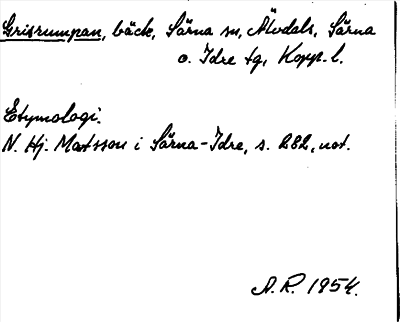 Grisrumpan, bäck, Särna sn, Älvdals, Särna
o. Idre tg, Kopp. l.
Etymologi.
N. Hj. Matsson i Särna-Idre, s. 282, not.
A.R. 1954.